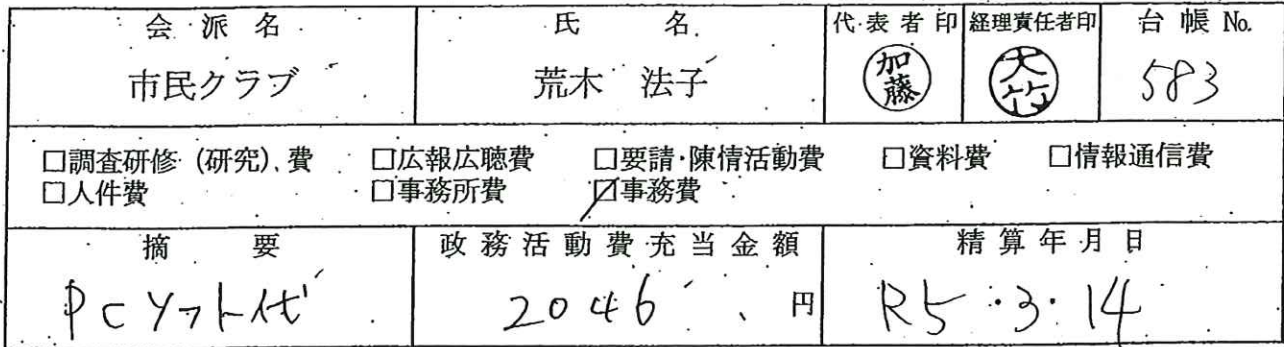 会派名 氏名 代表者印 経理責任者印 台帳No.
市民クラブ 荒木 法子 加藤 大竹 583
□調査研修(研究)費 □広報広聴費 □要請・陳情活動費 □資料費 □情報通信費
□人件費 □事務所費 ☑事務費
摘要 政務活動費充当金額 精算年月日
PCソフト代 2046円 R5・3・14